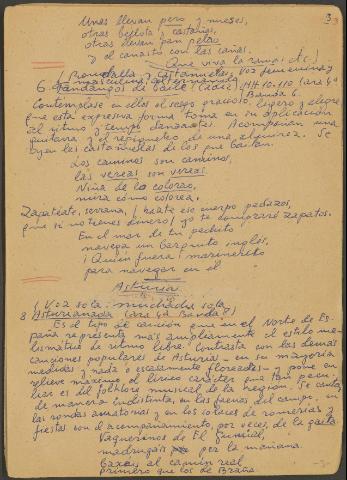 3
Unas llevan pero y nueses,
otras bellota y castañas,
otras llevan pan
y el canasto con las cañas.
Que viva la rama! &c.)
(Rondalla y castañuelas. Voz femenina y
masculina alternando
6 Fandangos de baile (Cádiz) HH 10-110 (cara 4ª
Banda 6.
Contémplase en ellos el sesgo gracioso, ligero y alegre
que esta expresiva forma toma en su aplicación
al ritmo y tempo danzables. Acompañan una
guitarra y el regioneteo de una alquirez. Se
oyen las castañuelas de los que bailan.
Los caminos son caminos,
las vereas son vereas.
Niña de lo colorao,
mira cómo colorea.
Zapatéate, serrana, ¡hazte ese cuerpo pedazos,
que si no tienes dinero yo te compraré zapatos.
En el mar de tu pechito
navega un barquito inglés,
¡Quién fuera! marinerito
para navegar en él
Asturias
(Voz sola: muchacha sola
8 Asturianada (cara 4ª Banda 8)
Es el tipo de canción que en el Norte de Es-
paña representa más ampliamente el estilo me-
lismático de ritmo libre. Contrasta con las demás
canciones populares de Asturias - en su mayoría
medidas y nada o escasamente floreadas - y pone en
relieve máxime el lírico carácter que tan pecu-
liar es del folklore musical de la región. Se canta
de manera indistinta, en las faenas del campo, en
las rondas amatorias y en los solaces de romerías y
fiestas con el acompañamiento, por veces, de la gaita.
Vaqueiros de El Gumial,
madrugar por la mañana.
Baxai al camín real
primero que los de Braña.